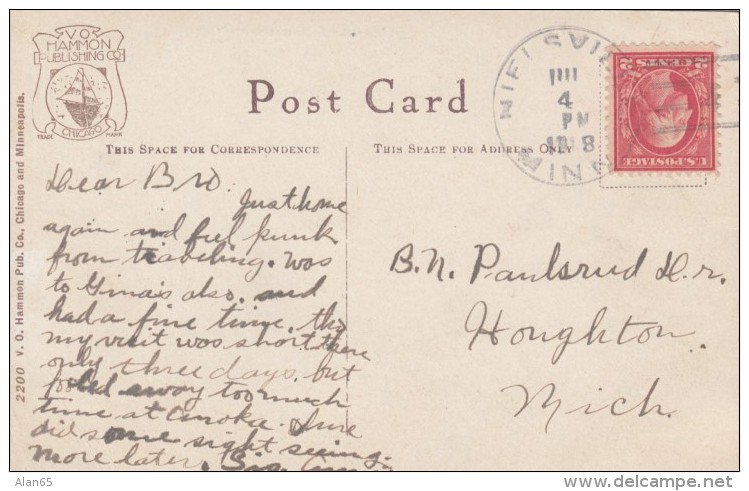 V.O.
HAMMON
PUBLISHING CO.
CHICAGO
TRADE MARK
2200 V. O. Hammon Pub. Co., Chicago and Minneapolis.
Post Card
THIS SPACE FOR CORRESPONDENCE
THIS SPACE FOR ADDRESS ONLY
NIELSVILLE
MINN
4
PM
2 CENTS 2
U.S. POSTAGE
Dear Bro.
Just home
again and feel punk
from traveling. Was
to Gina's also. and
had a fine time. tho
my visit was short there
only three days. but
fooled away too much
time at Anoka. Sure
did some sight seeing.
more later. Sis.
B.N. Paulsrud Dr.
Houghton
Mich.
Alan65
delcampe.net